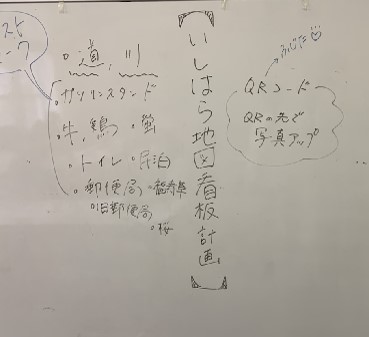 いしはら地図看板計画
・道，川
・ガソリンスタンド
・牛，鶏 ・蛍
・トイレ ・民泊
・郵便局
・旧郵便局
・桜
QRコード
QRの先で
写真アップ